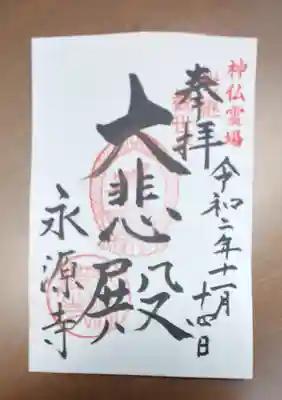 神仏霊場
奉拝
令和二年十一月
十四日
大悲殿
永源寺